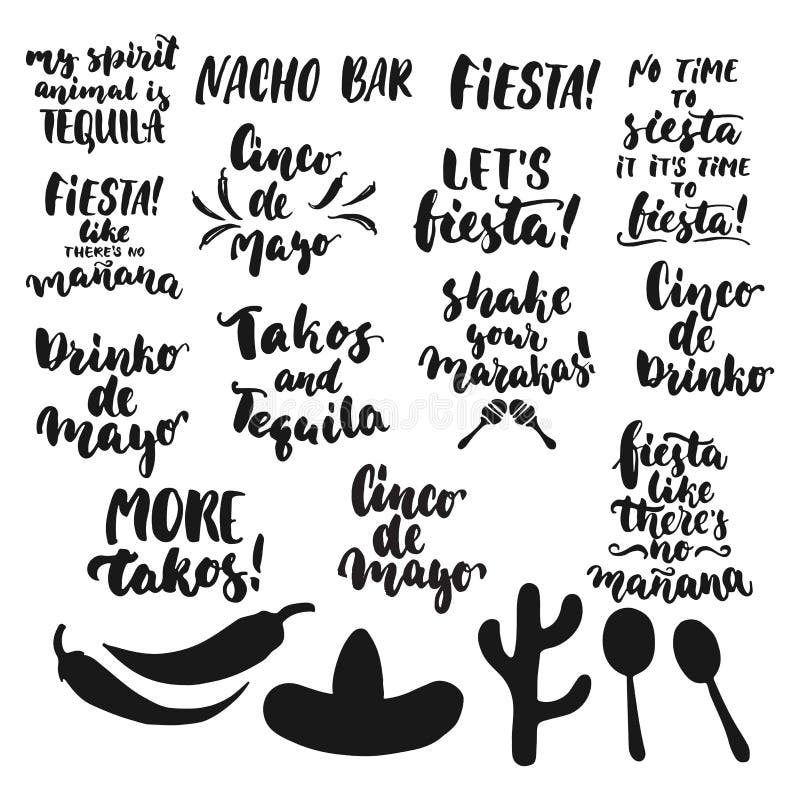 my spirit
animal is
TEQUILA
NACHO BAR
FIESTA!
NO TIME
TO
siesta
IT IT'S TIME
TO
fiesta!
Cinco
de
Mayo
LET'S
fiesta!
FIESTA!
like
THERE'S NO
mañana
Drinko
de
mayo
Takos
and
Tequila
shake
your
marakas!
Cinco
de
Drinko
MORE
takos!
Cinco
de
mayo
fiesta
like
there's
no
mañana
dreamstime